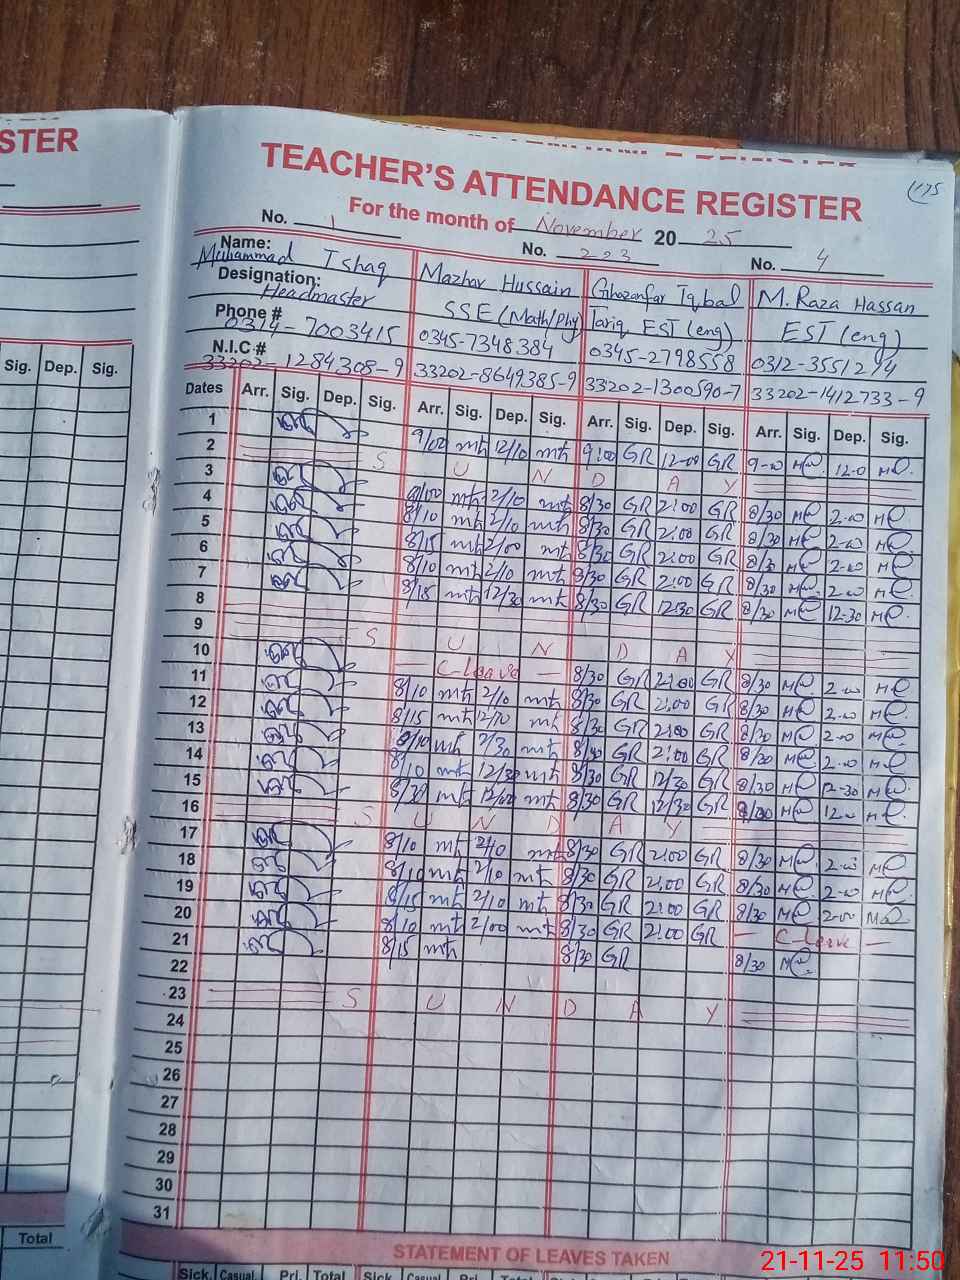 STER
TEACHER'S ATTENDANCE REGISTER
175
For the month of November 2025
No. 1
No. 2 2 3
No. 4
Name: Muhammad Ishaq
Mazhar Hussain
Ghazanfar Iqbal
M. Raza Hassan
Designation: Headmaster
SSE (Math/Phy)
Tariq EST (eng)
EST (eng)
Phone # 0314-7003415
0345-7348384
0345-2798558
0312-3551274
N.I.C # 33202-1284308-9
33202-8649385-9
33202-1300590-7
33202-1412733-9
Sig. Dep. Sig.
Dates Arr. Sig. Dep. Sig. Arr. Sig. Dep. Sig. Arr. Sig. Dep. Sig. Arr. Sig. Dep. Sig.
1 9/00 mh 12/10 mh 9:00 GR 12-00 GR 9-00 12-0
2 S U N D A Y
3 8/00 mh 2/10 mh 8/30 GR 2:00 GR 8/30 2-00
4 8/10 mh 2/10 mh 8/30 GR 2:00 GR 8/30 2-00
5 8/15 mh 2/00 mh 8/30 GR 2:00 GR 8/30 2-00
6 8/10 mh 2/10 mh 8/30 GR 2:00 GR 8/30 2-00
7 8/15 mh 12/30 mh 8/30 GR 12:30 GR 8/30 12-30
8
9 S U N D A Y
10 — C-leave — 8/30 GR 2:00 GR 8/30 2-00
11 8/10 mh 2/10 mh 8/30 GR 2:00 GR 8/30 2-00
12 8/15 mh mh 8/30 GR 2:00 GR 8/30 2-00
13 8/10 mh 2/30 mh 8/30 GR 2:00 GR 8/30 2-00
14 8/10 mh 12/30 mh 8/30 GR 12/30 GR 8/30 12-30
15 8/30 mh 12/00 mh 8/30 GR 12/30 GR 12-0
16 S U N D A Y
17 8/10 mh 2/10 mh 8/30 GR 2:00 GR 8/30 2-00
18 8/10 mh 2/10 mh 8/30 GR 2:00 GR 8/30 2-00
19 8/15 mh 2/10 mh 8/30 GR 2:00 GR 8/30 2-00
20 8/10 mh 2/00 mh 8/30 GR 2:00 GR — C-leave —
21 8/15 mh 8/30 GR 8/30
22
23 S U N D A Y
24
25
26
27
28
29
30
31
Total
STATEMENT OF LEAVES TAKEN
Sick. Casual Pri. Total Sick. Casual Pri. Total Sick. Casual
21-11-25 11:50